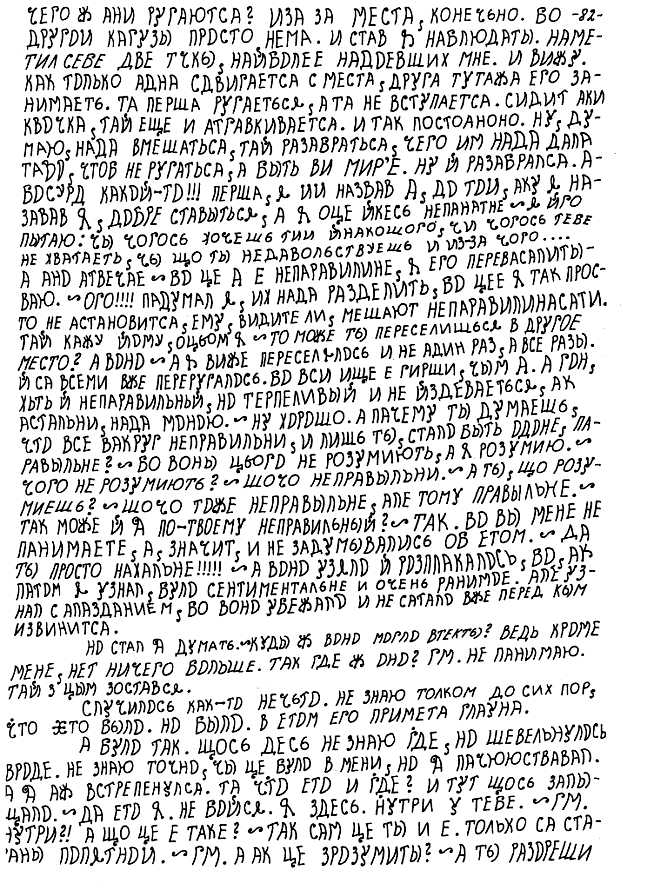 ЧЕГО Ж АНИ РУГАЮТСА? ИЗА ЗА МЕСТА, КОНЕЧЬНО. ВО -82-
ДРУГОЙ КАГУЗЫ ПРОСТО НЕМА. И СТАВ Я НАВЛЮДАТЫ. НАМЕ-
ТИЛ СЕВЕ ДВЕ ТЧКЫ, НАЙВОЛЕЕ НАДОЕВШИХ МНЕ. И ВИЖУ.
КАК ТОЛЬКО АДНА СДВИГАЕТСА С МЕСТА, ДРУГА ТУТАЖА ЕГО ЗА-
НИМАЕТЬ. ТА ПЕРША РУГАЕТЬСЯ, А ТА НЕ ВСТУПАЕТСА. СИДИТ АКИ
КВОЧКА, ТАЙ ЕЩЕ И АТРАВКИВАЕТСА. И ТАК ПОСТОАНОНО. НУ, ДУ-
МАЮ, НАДА ВМЕШАТЬСА, ТАЙ РАЗАВРАТЬСА, ЧЕГО ИМ НАДА ДАЛА
ЧТОВ НЕ РУГАТЬСА, А ВЫТЬ ВИ МИР'Е. НУ Й РАЗАВРАЛСА. А-
ВОСУРД КАКОЙ-ТО!!! ПЕРША, Я ИИ НАЗВАВ А, ДО ТОИ, АКУ Я НА-
ЗАВАВ Я, ДОВРЕ СТАВЫТЬСЯ, А Я ОЦЕ ЙКЕСЬ НЕПАНАТНЕ ~ Я ЙГО
ПЫТАЮ: ЧЫ ЧОГОСЬ ХОЧЕШЬ ТИИ ЙНАКОШОГО, ЧИ ЧОГОСЬ ТЕВЕ
НЕ ХВАТАЕТЬ, ЧЫ ЩО ТЫ НЕДАВОЛЬСТВУЕШЬ И ИЗ-ЗА ЧОГО....
А АНО АТВЕЧАЕ ~ ВО ЦЕ А Е НЕПАРАВИЛИНЕ, Я ЕГО ПЕРЕВАСАПИТЫ-
ВАЮ. ~ ОГО!!!! ПАДУМАЛ Я, ИХ НАДА РАЗДЕЛИТЬ, ВО ЦЕЕ Я ТАК ПРОС-
ТО НЕ АСТАНОВИТСА, ЕМУ, ВИДИТЕ ЛИ, МЕШАЮТ НЕПАРАВИЛИНАСАТИ.
ТАЙ КАЖУ ЙОМУ, ОЦЬОМ Я ~ ТО МОЖЕ ТЫ ПЕРЕСЕЛИШЬСЯ В ДРУГОЕ
МЕСТО? А ВОНО ~ А Я ВИЖЕ ПЕРЕСЕЛЯЛОСЬ И НЕ АДИН РАЗ, А ВСЕ РАЗЫ.
Й СА ВСЕМИ ВЖЕ ПЕРЕРУГАЛОСЬ. ВО ВСИ ИЩЕ Е ГИРШИ, ЧЫМ А. А ГОН,
ХЬТЬ Й НЕПАРАВИЛЬНЫЙ, НО ТЕРПЕЛИВЫЙ И НЕ ЙЗДЕВАЕТЬСЯ, АК
АСТАЛЬНИ, НАДА МОНОЮ. ~ НУ ХОРОШО. А ПАЧЕМУ ТЫ ДУМАЕШЬ,
ЧТО ВСЕ ВАКРУГ НЕПРАВИЛЬНИ, И ЛИШЬ ТЫ, СТАЛО ВЫТЬ ОДОНЕ, ПА-
РАВЫЛЬНЕ? ~ ВО ВОНЫ ЦЬОГО НЕ РОЗУМИЮТЬ, А Я РОЗУМИЮ. ~
ЧОГО НЕ РОЗУМИЮТЬ? ~ ШОЧО НЕПРАВЫЛЬНИ. ~ А ТЫ, ЩО РОЗУ-
МИЕШЬ? ~ ШОЧО ТОЖЕ НЕПРАВЫЛЬНЕ, АЛЕ ТОМУ ПРАВЫЛЬНЕ. ~
ТАК МОЖЕ Й Я ПО-ТВОЕМУ НЕПРАВИЛЬНЫЙ? ~ ТАК. ВО ВЫ МЕНЕ НЕ
ПАНИМАЕТЕ, А, ЗНАЧИТ, И НЕ ЗАДУМЫВАЛИСЬ ОВ ЕТОМ. ~ ДА
ТЫ ПРОСТО НАХАЛЬНЕ!!!!! ~ А ВОНО УЗЯЛО Й РОЗПЛАКАЛОСЬ, ВО, АК
ПАТОМ Я УЗНАЛ, ВУЛО СЕНТИМЕНТАЛЬНЕ И ОЧЕНЬ РАНИМОЕ. АЛЕ УЗ-
НАЛ С АПАЗДАНИЕМ, ВО ВОНО УВЕЖАЛО И НЕ САТАЛО ВЖЕ ПЕРЕД КЫМ
ИЗВИНИТСА.
НО СТАЛ Я ДУМАТЬ. ~ КУДЫ Ж ВОНО МОГЛО ВТЕКТЫ? ВЕДЬ КРОМЕ
МЕНЕ, НЕТ НИЧЕГО ВОЛЬШЕ. ТАК ГДЕ Ж ОНО? ГМ. НЕ ПАНИМАЮ.
ТАЙ З ЦЫМ ЗОСТАВСЯ.
СЛУЧИЛОСЬ КАК-ТО НЕЧЬТО. НЕ ЗНАЮ ТОЛКОМ ДО СИХ ПОР,
ЧТО ЭТО ВЫЛО. НО ВЫЛО. В ЕТОМ ЕГО ПРИМЕТА ГЛАУНА.
А ВУЛО ТАК. ЩОСЬ ДЕСЬ НЕ ЗНАЮ ГДЕ, НО ШЕВЕЛЬНУЛОСЬ
ВРОДЕ. НЕ ЗНАЮ ТОЧНО, ЧЫ ЦЕ ВУЛО В МЕНИ, НО Я ПАЧЮЮСТВАВАЛ.
А Я АЖ ВСТРЕПЕНУЛСА. ТА ЧТО ЕТО И ГДЕ? И ТУТ ЩОСЬ ЗАПЫ-
ЩАЛО. ~ ДА ЕТО Я. НЕ ВОЙСЯ. Я ЗДЕСЬ. НУТРИ У ТЕВЕ. ~ ГМ.
НУТРИ?! А ЩО ЦЕ Е ТАКЕ? ~ ТАК САМ ЦЕ ТЫ И Е. ТОЛЬХО СА СТА-
АНЫ ПОПЯТНОЙ. ~ ГМ. А АК ЦЕ ЗРОЗУМИТЫ? ~ А ТЫ РАЗДРЕШИ